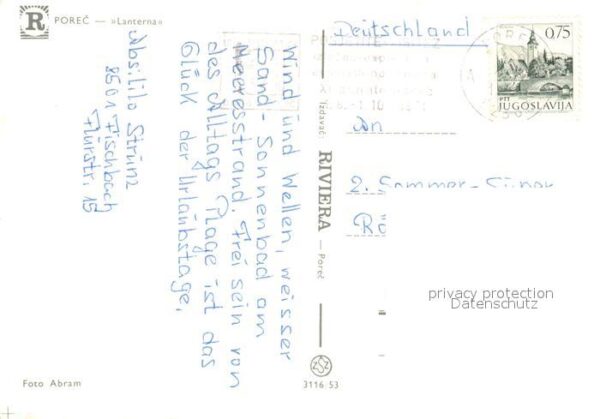 R POREČ — »Lanterna«
Deutschland
0,75
PTT
JUGOSLAVIJA
Wind und Wellen, weisser
Sand-Sonnenbad am
Meeresstrand. Frei sein von
des Alltags Plage ist das
Glück der Urlaubstage,
Strünz
8501 Fischbach
Flurstr. 15
Izdavač RIVIERA — Poreč
An
2. Sommer-
privacy protection
Datenschutz
Foto Abram
3116 53